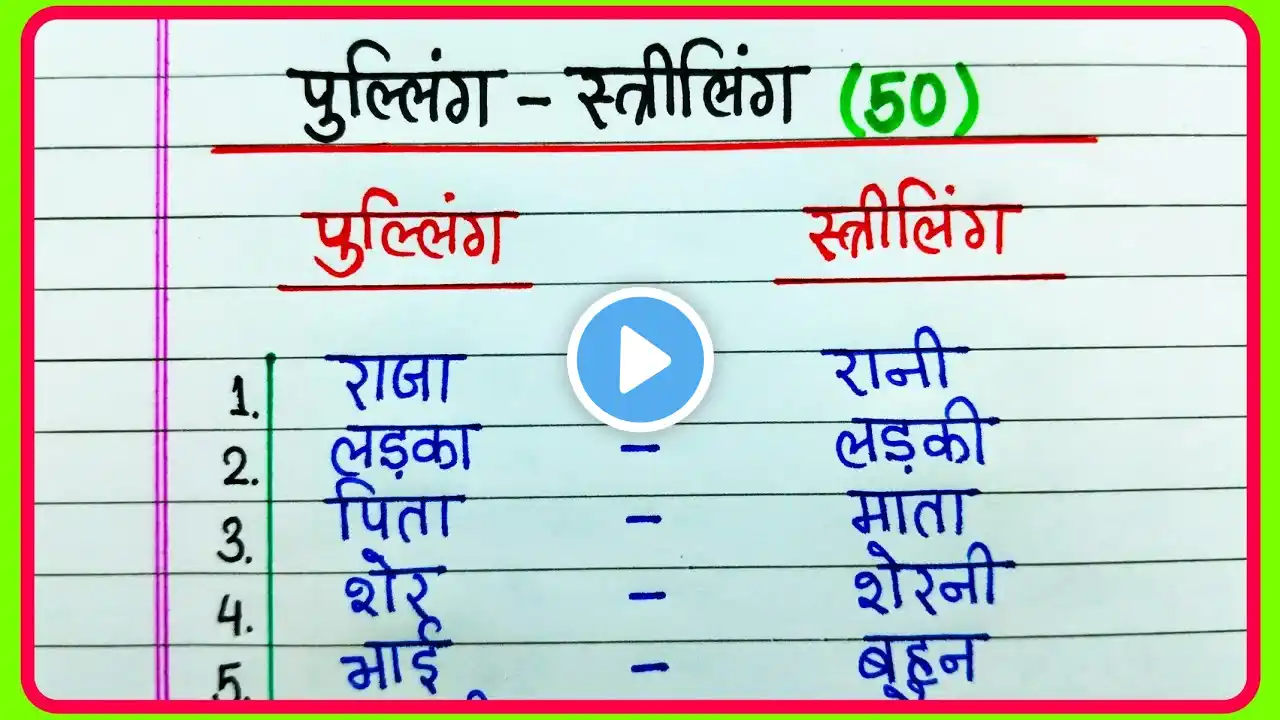 पुल्लिंग - स्त्रीलिंग (50)
पुल्लिंग स्त्रीलिंग
1. राजा रानी
2. लड़का - लड़की
3. पिता - माता
4. शेर - शेरनी
5. भाई - बहन